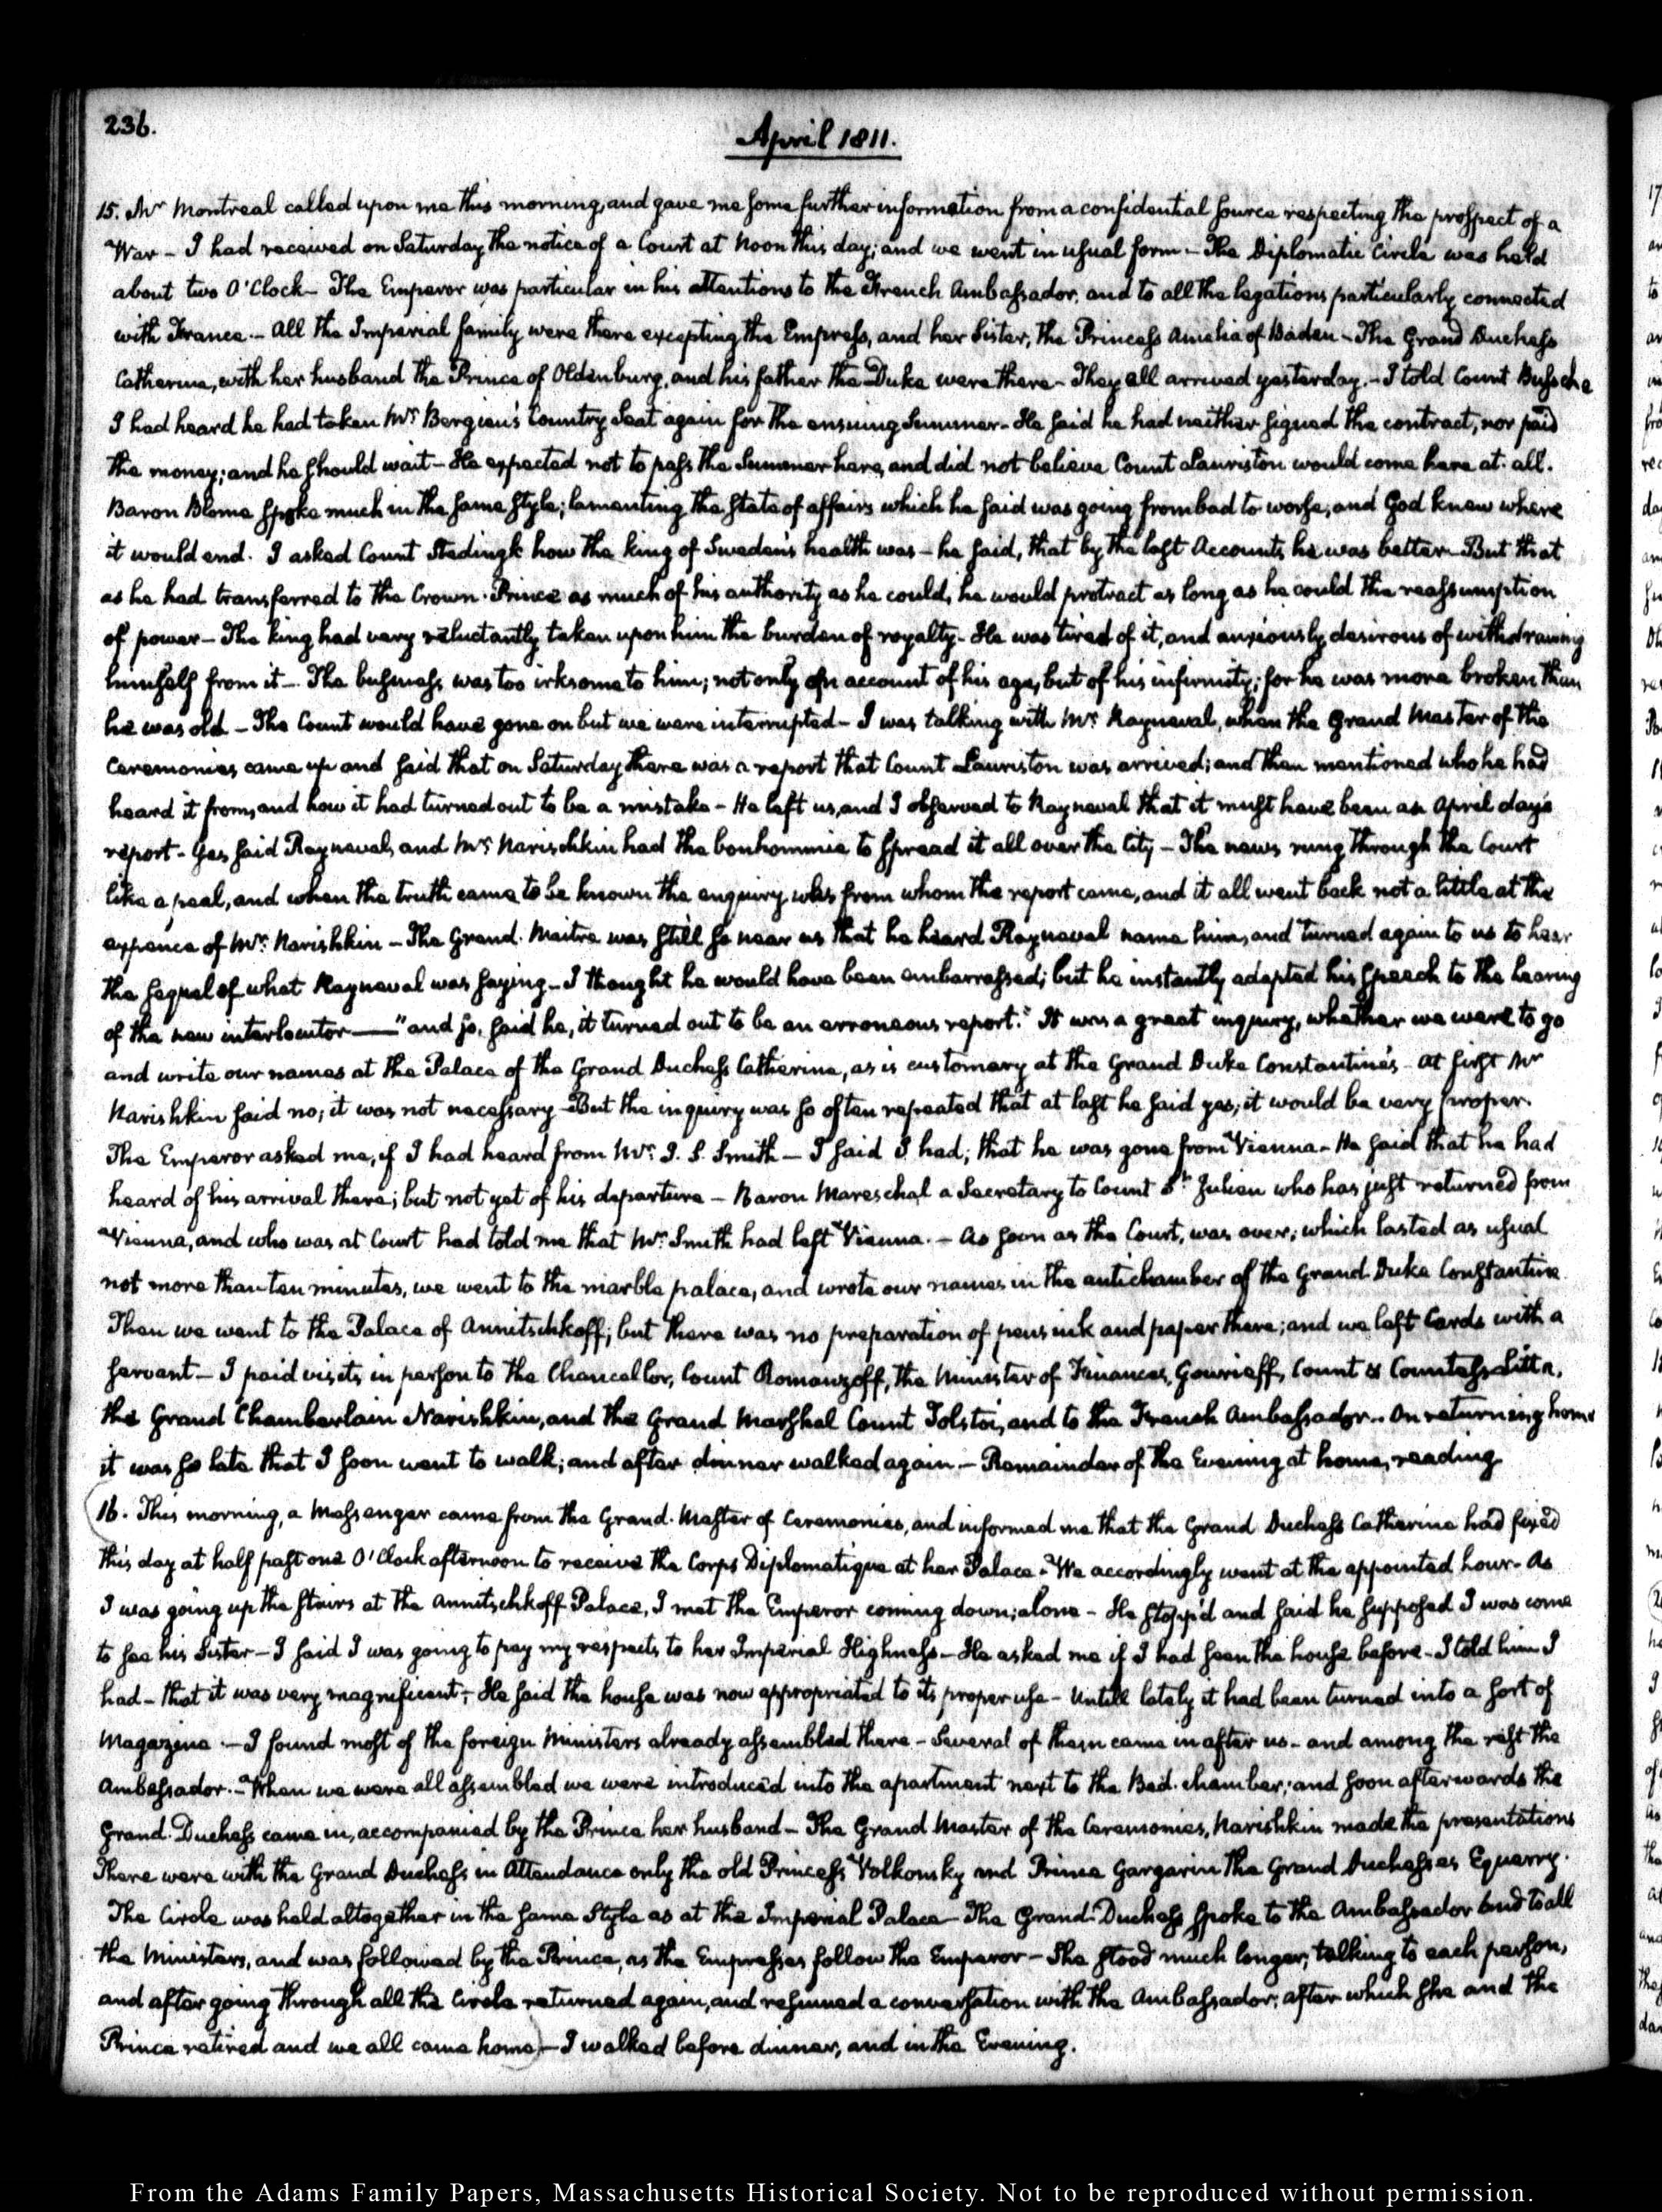 236.
April 1811.
15. Mr Montreal called upon me this morning, and gave me some further information from a confidential source respecting the prospect of a
War — I had received on Saturday the notice of a Court at Noon this day; and we went in usual form — The Diplomatic Circle was held
about two O'Clock — The Emperor was particular in his attentions to the French Ambassador, and to all the legations particularly connected
with France. — All the Imperial family were there excepting the Empress, and her Sister, the Princess Amelia of Baden — The Grand Duchess
Catherine, with her husband the Prince of Oldenburg, and his father the Duke were there — They all arrived yesterday. — I told Count Bussche
I had heard he had taken Mr. Bergien's Country Seat again for the ensuing Summer — He said he had neither signed the contract, nor paid
the money; and he should wait — He expected not to pass the Summer here, and did not believe Count Lauriston would come here at all.
Baron Blome spoke much in the same style; lamenting the state of affairs which he said was going from bad to worse, and God knew where
it would end. I asked Count Stedingk how the king of Sweden's health was — he said, that by the last Accounts he was better — But that
as he had transferred to the Crown-Prince as much of his authority as he could, he would protract as long as he could the reassumption
of power — The king had very reluctantly taken upon him the burden of royalty — He was tired of it, and anxiously desirous of withdrawing
himself from it — The business was too irksome to him; not only on account of his age, but of his infirmity; for he was more broken than
he was old — The Count would have gone on but we were interrupted — I was talking with Mr. Rayneval, when the Grand Master of the
Ceremonies came up and said that on Saturday there was a report that Count Lauriston was arrived; and then mentioned who he had
heard it from, and how it had turned out to be a mistake — He left us, and I observed to Rayneval that it must have been an April day's
report — Yes, said Rayneval, and Mr. Narischkin had the bonhommie to spread it all over the City — The news rung through the Court
like a peal, and when the truth came to be known the enquiry was from whom the report came, and it all went back not a little at the
expence of Mr. Narishkin — The Grand-Maitre was still so near us that he heard Rayneval name him, and turned again to us to hear
the sequel of what Rayneval was saying — I thought he would have been embarrassed; but he instantly adapted his speech to the hearing
of the new interlocutor —— "and so, said he, it turned out to be an erroneous report." It was a great inquiry, whether we were to go
and write our names at the Palace of the Grand Duchess Catherine, as is customary at the Grand Duke Constantine's — At first Mr
Narishkin said no; it was not necessary — But the inquiry was so often repeated that at last he said yes, it would be very proper.
The Emperor asked me, if I had heard from Mr. J. S. Smith — I said I had; that he was gone from Vienna — He said that he had
heard of his arrival there; but not yet of his departure — Baron Mareschal a Secretary to Count St. Julien who has just returned from
Vienna, and who was at Court had told me that Mr. Smith had left Vienna. — As soon as the Court, was over; which lasted as usual
not more than ten minutes, we went to the marble palace, and wrote our names in the antichamber of the Grand Duke Constantine.
Then we went to the Palace of Annitschkoff; but there was no preparation of pens ink and paper there; and we left Cards with a
servant — I paid visits in person to the Chancellor, Count Romanzoff, the Minister of Finances, Gourieff, Count & Countess Litta,
the Grand Chamberlain Narishkin, and the Grand Marshal Count Tolstoi, and to the French Ambassador. — On returning home
it was so late that I soon went to walk; and after dinner walked again — Remainder of the Evening at home, reading
16. This morning, a Messenger came from the Grand-Master of Ceremonies, and informed me that the Grand Duchess Catherine had fixed
this day at half past one O'Clock afternoon to receive the Corps Diplomatique at her Palace — We accordingly went at the appointed hour — As
I was going up the stairs at the Annitschkoff Palace, I met the Emperor coming down; alone — He stopp'd and said he supposed I was come
to see his Sister — I said I was going to pay my respects to her Imperial Highness — He asked me if I had seen the house before — I told him I
had — that it was very magnificent — He said the house was now appropriated to its proper use — Untill lately it had been turned into a sort of
Magazine — I found most of the foreign Ministers already assembled there — Several of them came in after us — and among the rest the
Ambassador. — When we were all assembled we were introduced into the apartment next to the Bed-chamber; and soon afterwards the
Grand-Duchess came in, accompanied by the Prince her husband — The Grand Master of the Ceremonies, Narishkin made the presentations
There were with the Grand Duchess in Attendance only the old Princess Volkonsky and Prince Gargarin the Grand Duchesses Equerry.
The Circle was held altogether in the same Style as at the Imperial Palace — The Grand-Duchess spoke to the Ambassador and to all
the Ministers, and was followed by the Prince, as the Empresses follow the Emperor — She stood much longer, talking to each person,
and after going through all the Circle returned again, and resumed a conversation with the Ambassador; after which she and the
Prince retired and we all came home) — I walked before dinner, and in the Evening.
From the Adams Family Papers, Massachusetts Historical Society. Not to be reproduced without permission.